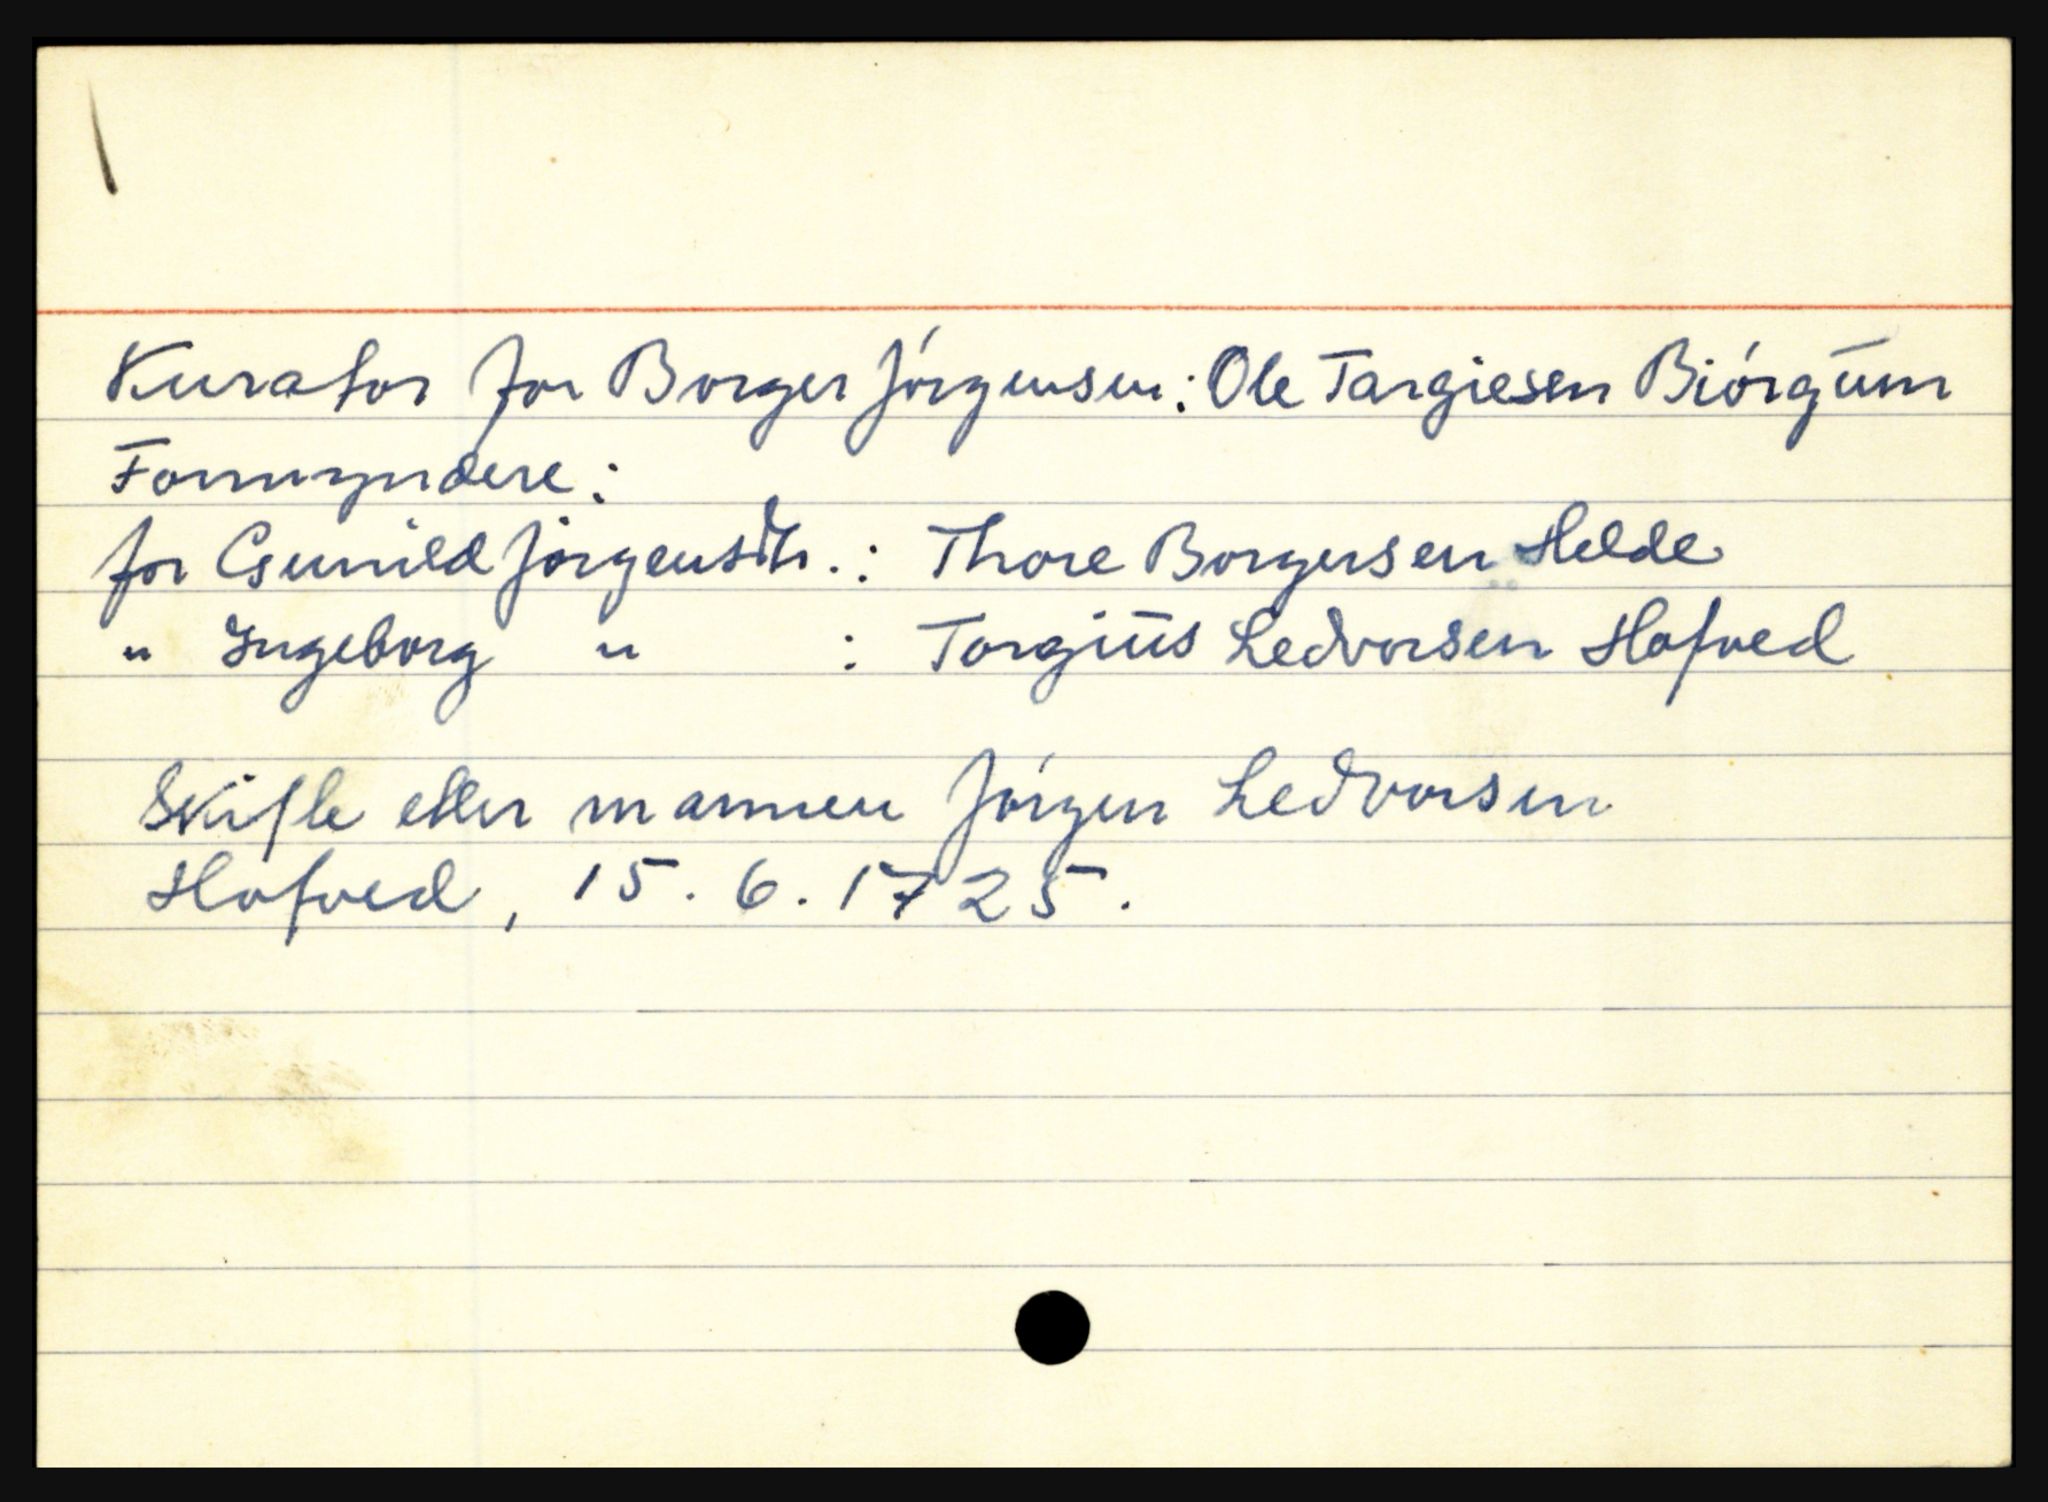 Kurator for Borger Jórgensen: Ole Targiesen Biórgum
Formyndere:
for Gunild Jórgensdtr.: Thore Borgersen Helde
" Ingeborg " : Torgius Ledvorsen Hofved
Skifte etter mannen Jórgen Ledvorsen
Hofved, 15.6.1725.